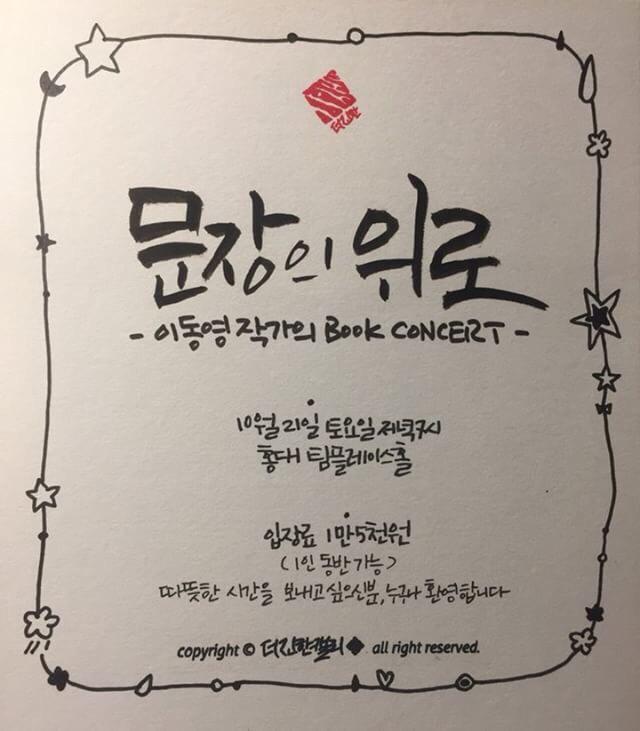 문장의 위로
- 이동영 작가의 BOOK CONCERT -
10월 21일 토요일 저녁 7시
홍대 팀플레이스홀
입장료 1만 5천원
(1인 동반 가능)
따뜻한 시간을 보내고 싶으신분, 누구나 환영합니다
copyright © 더진한캘리 all right reserved.